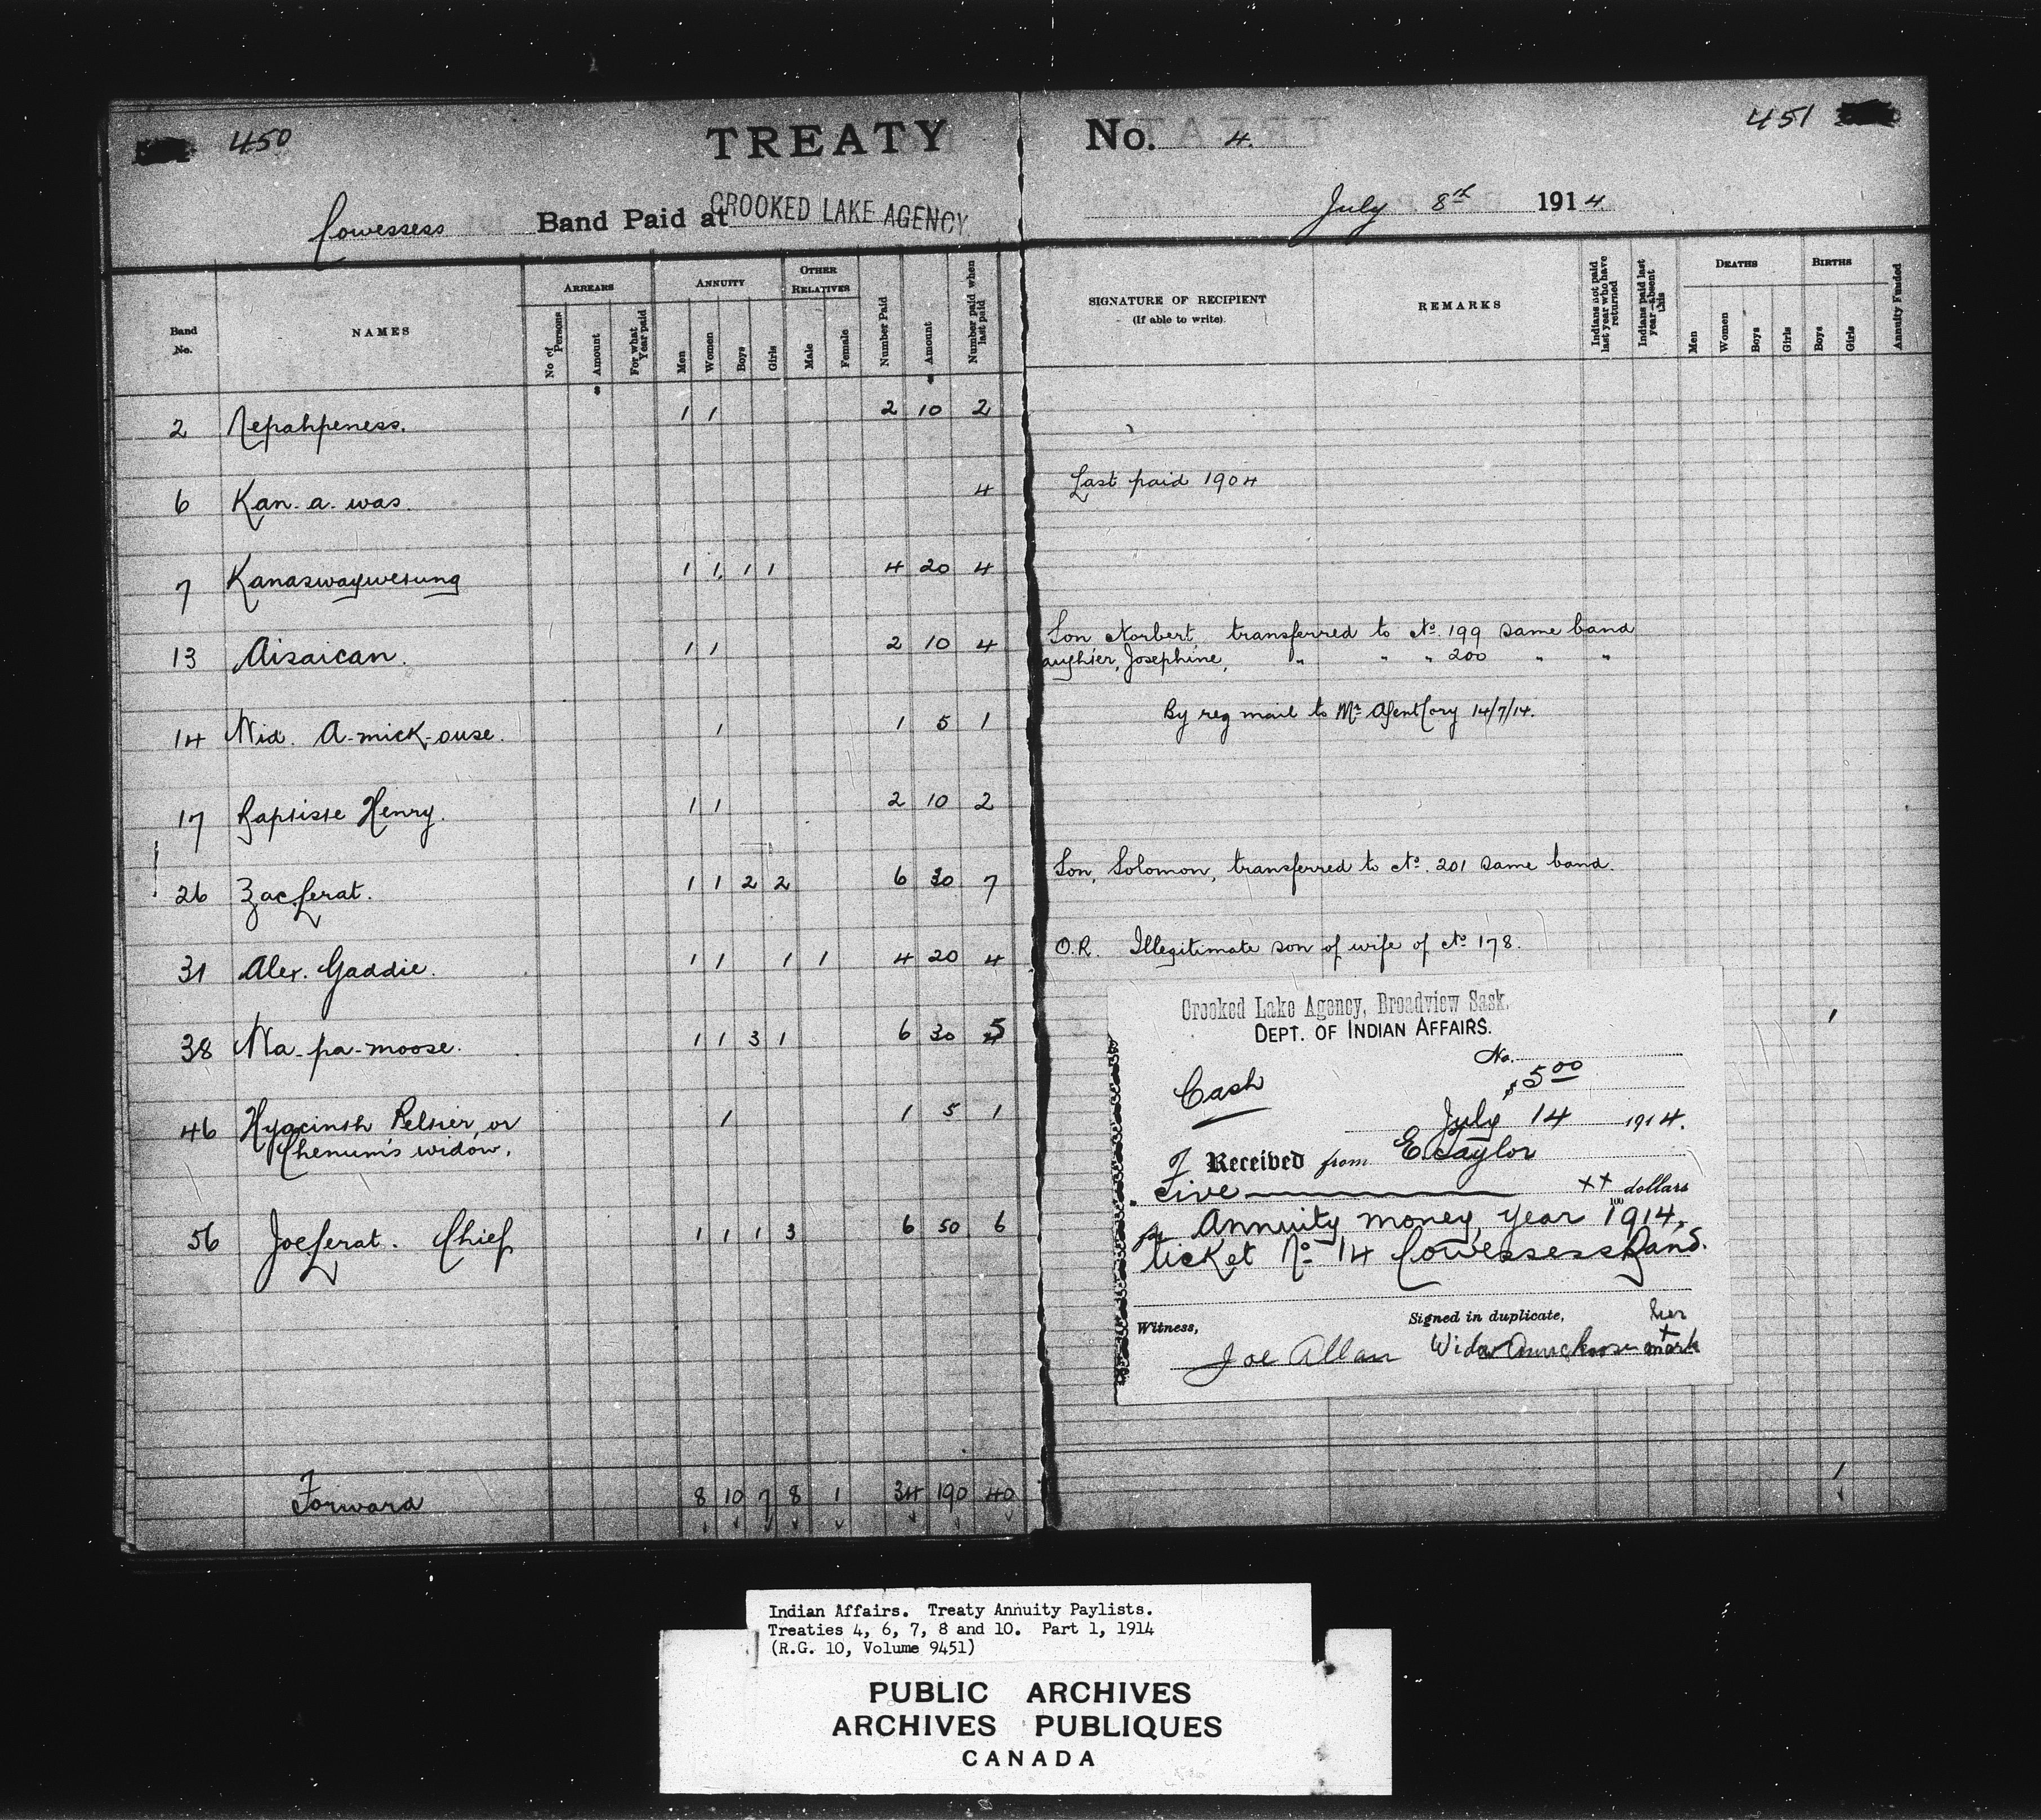 450
TREATY No. 4.
451
Cowessess Band Paid at CROOKED LAKE AGENCY. July 8th 1914
Band No.
NAMES
ARREARS
No of Persons
Amount
For what Year paid
ANNUITY
Men
Women
Boys
Girls
OTHER RELATIVES
Male
Female
Number Paid
Amount
Number paid when last paid
SIGNATURE OF RECIPIENT
(If able to write)
REMARKS
Indians not paid last year who have returned
Indians paid last year—absent this
DEATHS
Men
Women
Boys
Girls
BIRTHS
Boys
Girls
Annuity Funded
2 Nepahpeness. 1 1 2 10 2
6 Kan-a-was. 4 Last paid 1904
7 Kanaswaywetung 1 1 1 1 4 20 4
13 Aisaican. 1 1 2 10 4 Son Norbert, transferred to No. 199 same band
aughter, Josephine, " " " 200 " "
14 Wid. A-mick-ouse. 1 1 5 1 By reg mail to Mr Agent Cory 14/7/14.
17 Baptiste Henry. 1 1 2 10 2
26 Zac Lerat. 1 1 2 2 6 30 7 Son, Solomon, transferred to No. 201 same band.
31 Alex. Gaddie. 1 1 1 1 4 20 4 O.R. Illegitimate son of wife of No 178.
38 Na-pa-moose. 1 1 3 1 6 30 5 1
46 Hyacinth Peltier, or 1 1 5 1
Chenum's widow.
56 Joe Lerat. Chief 1 1 1 3 6 50 6
Forward 8 10 7 8 1 34 190 40 1
Crooked Lake Agency, Broadview Sask.
DEPT. OF INDIAN AFFAIRS.
No.
Cash
$5 00
July 14 1914.
Received from E Taylor
Five xx/100 dollars
for Annuity money, year 1914,
ticket No 14 Cowessess Band.
Witness, Signed in duplicate, her
Joe Allan Widow Amickouse + mark
Indian Affairs. Treaty Annuity Paylists.
Treaties 4, 6, 7, 8 and 10. Part 1, 1914
(R.G. 10, Volume 9451)
PUBLIC ARCHIVES
ARCHIVES PUBLIQUES
CANADA